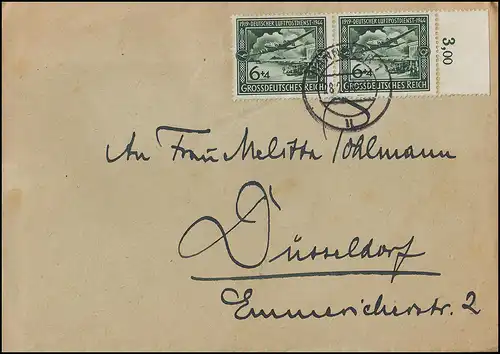 1919·DEUTSCHER LUFTPOSTDIENST·1944
6+4
GROSSDEUTSCHES REICH
1919·DEUTSCHER LUFTPOSTDIENST·1944
6+4
GROSSDEUTSCHES REICH
3,00
An Frau Melitta Pohlmann
Düsseldorf
Emmericherstr. 2